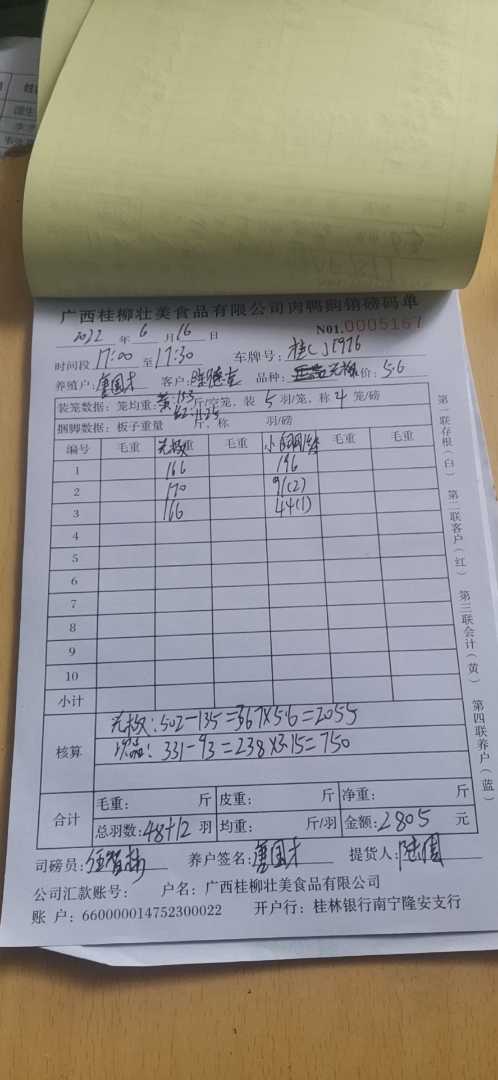 广西桂柳壮美食品有限公司肉鸭购销磅码单
2022 年 6 月 16 日 NO1.0005167
时间段 17:00 至 17:30 车牌号:
养殖户: 唐国才 客户: 品种: 价: 5.6
装笼数据: 笼均重: 斤/空笼, 装 5 羽/笼, 称 4 笼/磅
捆脚数据: 板子重量 斤, 称 羽/磅
编号 毛重 毛重 毛重 毛重 毛重
1 166 196
2 170 91(2)
3 166 44(1)
4
5
6
7
8
9
10
小计
核算
:502-135=367×5.6=2055
:331-93=238×3.15=750
合计
毛重: 斤 皮重: 斤 净重: 斤
总羽数: 48+12 羽 均重: 斤/羽 金额: 2805 元
司磅员: 养户签名: 唐国才 提货人:
公司汇款账号: 户名: 广西桂柳壮美食品有限公司
账 户: 660000014752300022 开户行: 桂林银行南宁隆安支行
第一联存根(白) 第二联客户(红) 第三联会计(黄) 第四联养户(蓝)